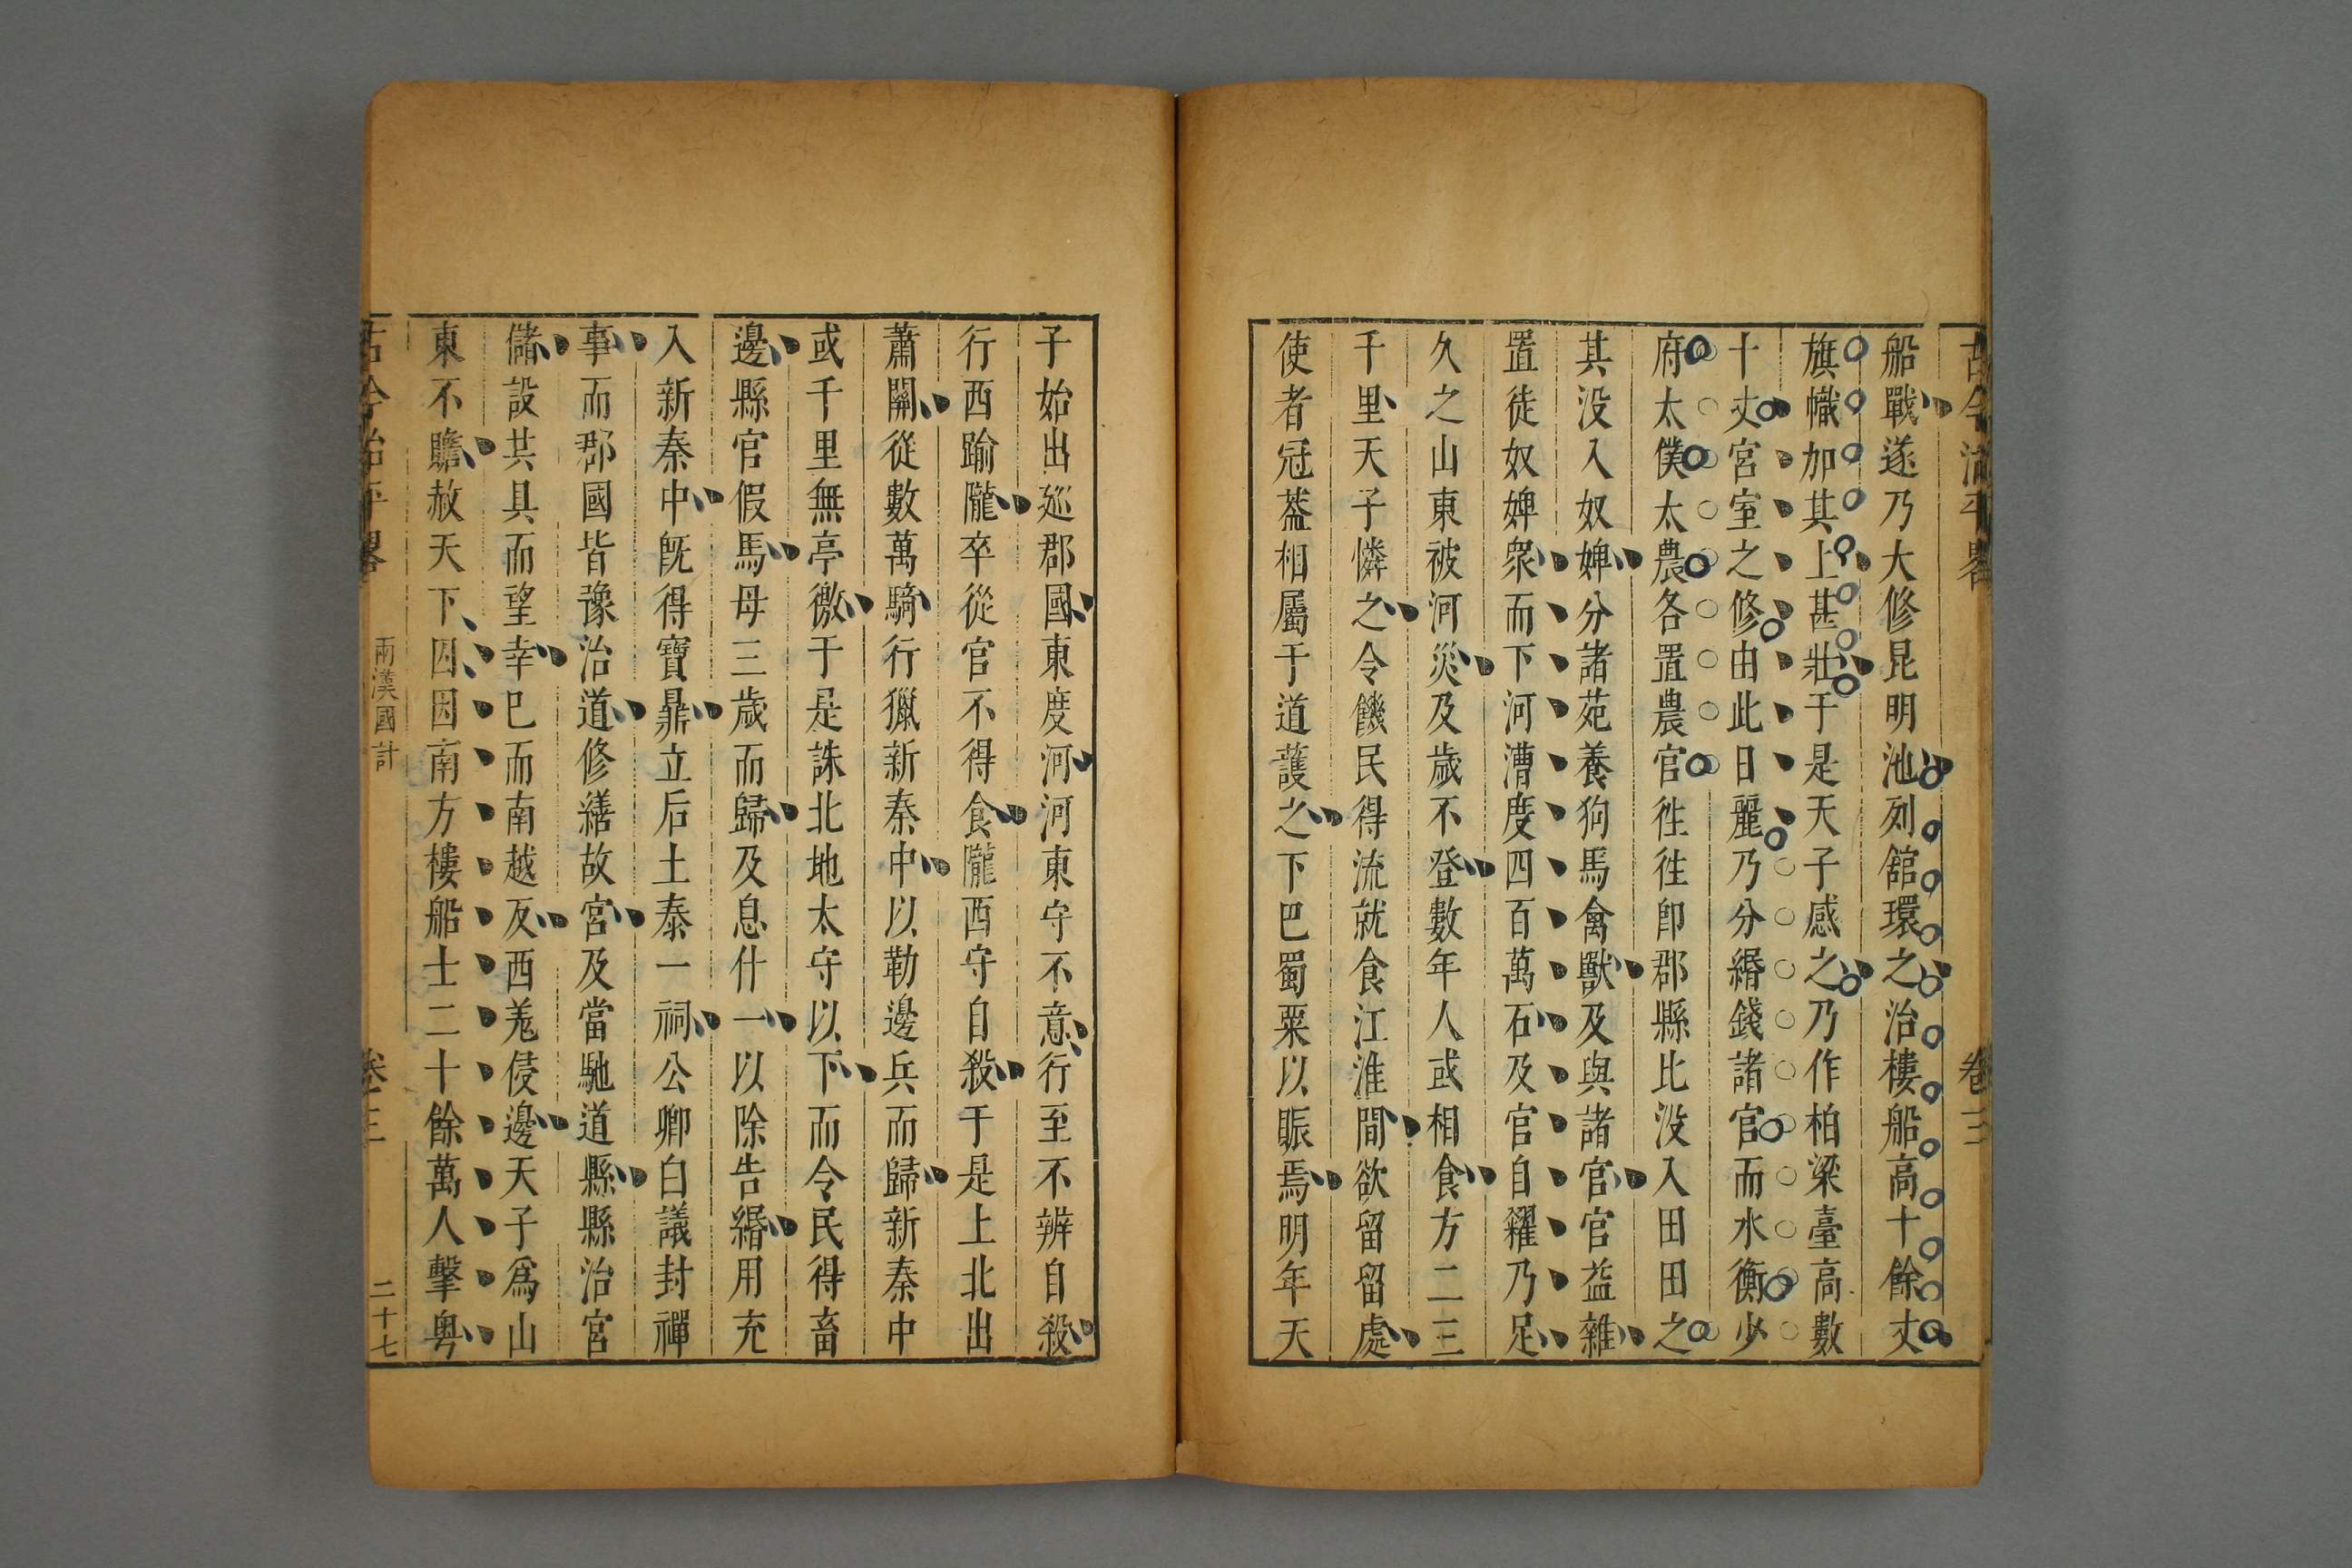 古今治平畧
卷三
船戰遂乃大修昆明池列舘環之治樓船高十餘丈
旗幟加其上甚壯于是天子感之乃作柏梁臺高數
十丈宮室之修由此日麗乃分緡錢諸官而水衡少
府太僕太農各置農官徃徃卽郡縣比沒入田田之
其没入奴婢分諸苑養狗馬禽獸及與諸官官益雜
置徒奴婢衆而下河漕度四百萬石及官自糴乃足
久之山東被河災及歲不登數年人或相食方二三
千里天子憐之令饑民得流就食江淮間欲留留處
使者冠葢相屬于道護之下巴蜀粟以賑焉明年天
子始出廵郡國東度河河東守不意行至不辨自殺
行西踰隴卒從官不得食隴西守自殺于是上北出
蕭關從數萬騎行獵新秦中以勒邊兵而歸新秦中
或千里無亭徼于是誅北地太守以下而令民得畜
邊縣官假馬母三歲而歸及息什一以除告緡用充
入新秦中旣得寶鼎立后土泰一祠公卿白議封禪
事而郡國皆豫治道修繕故宮及當馳道縣縣治宮
儲設共具而望幸巳而南越反西羌侵邊天子爲山
東不贍赦天下囚因南方樓船士二十餘萬人擊粤
古今治平畧
兩漢國計
卷三
二十七